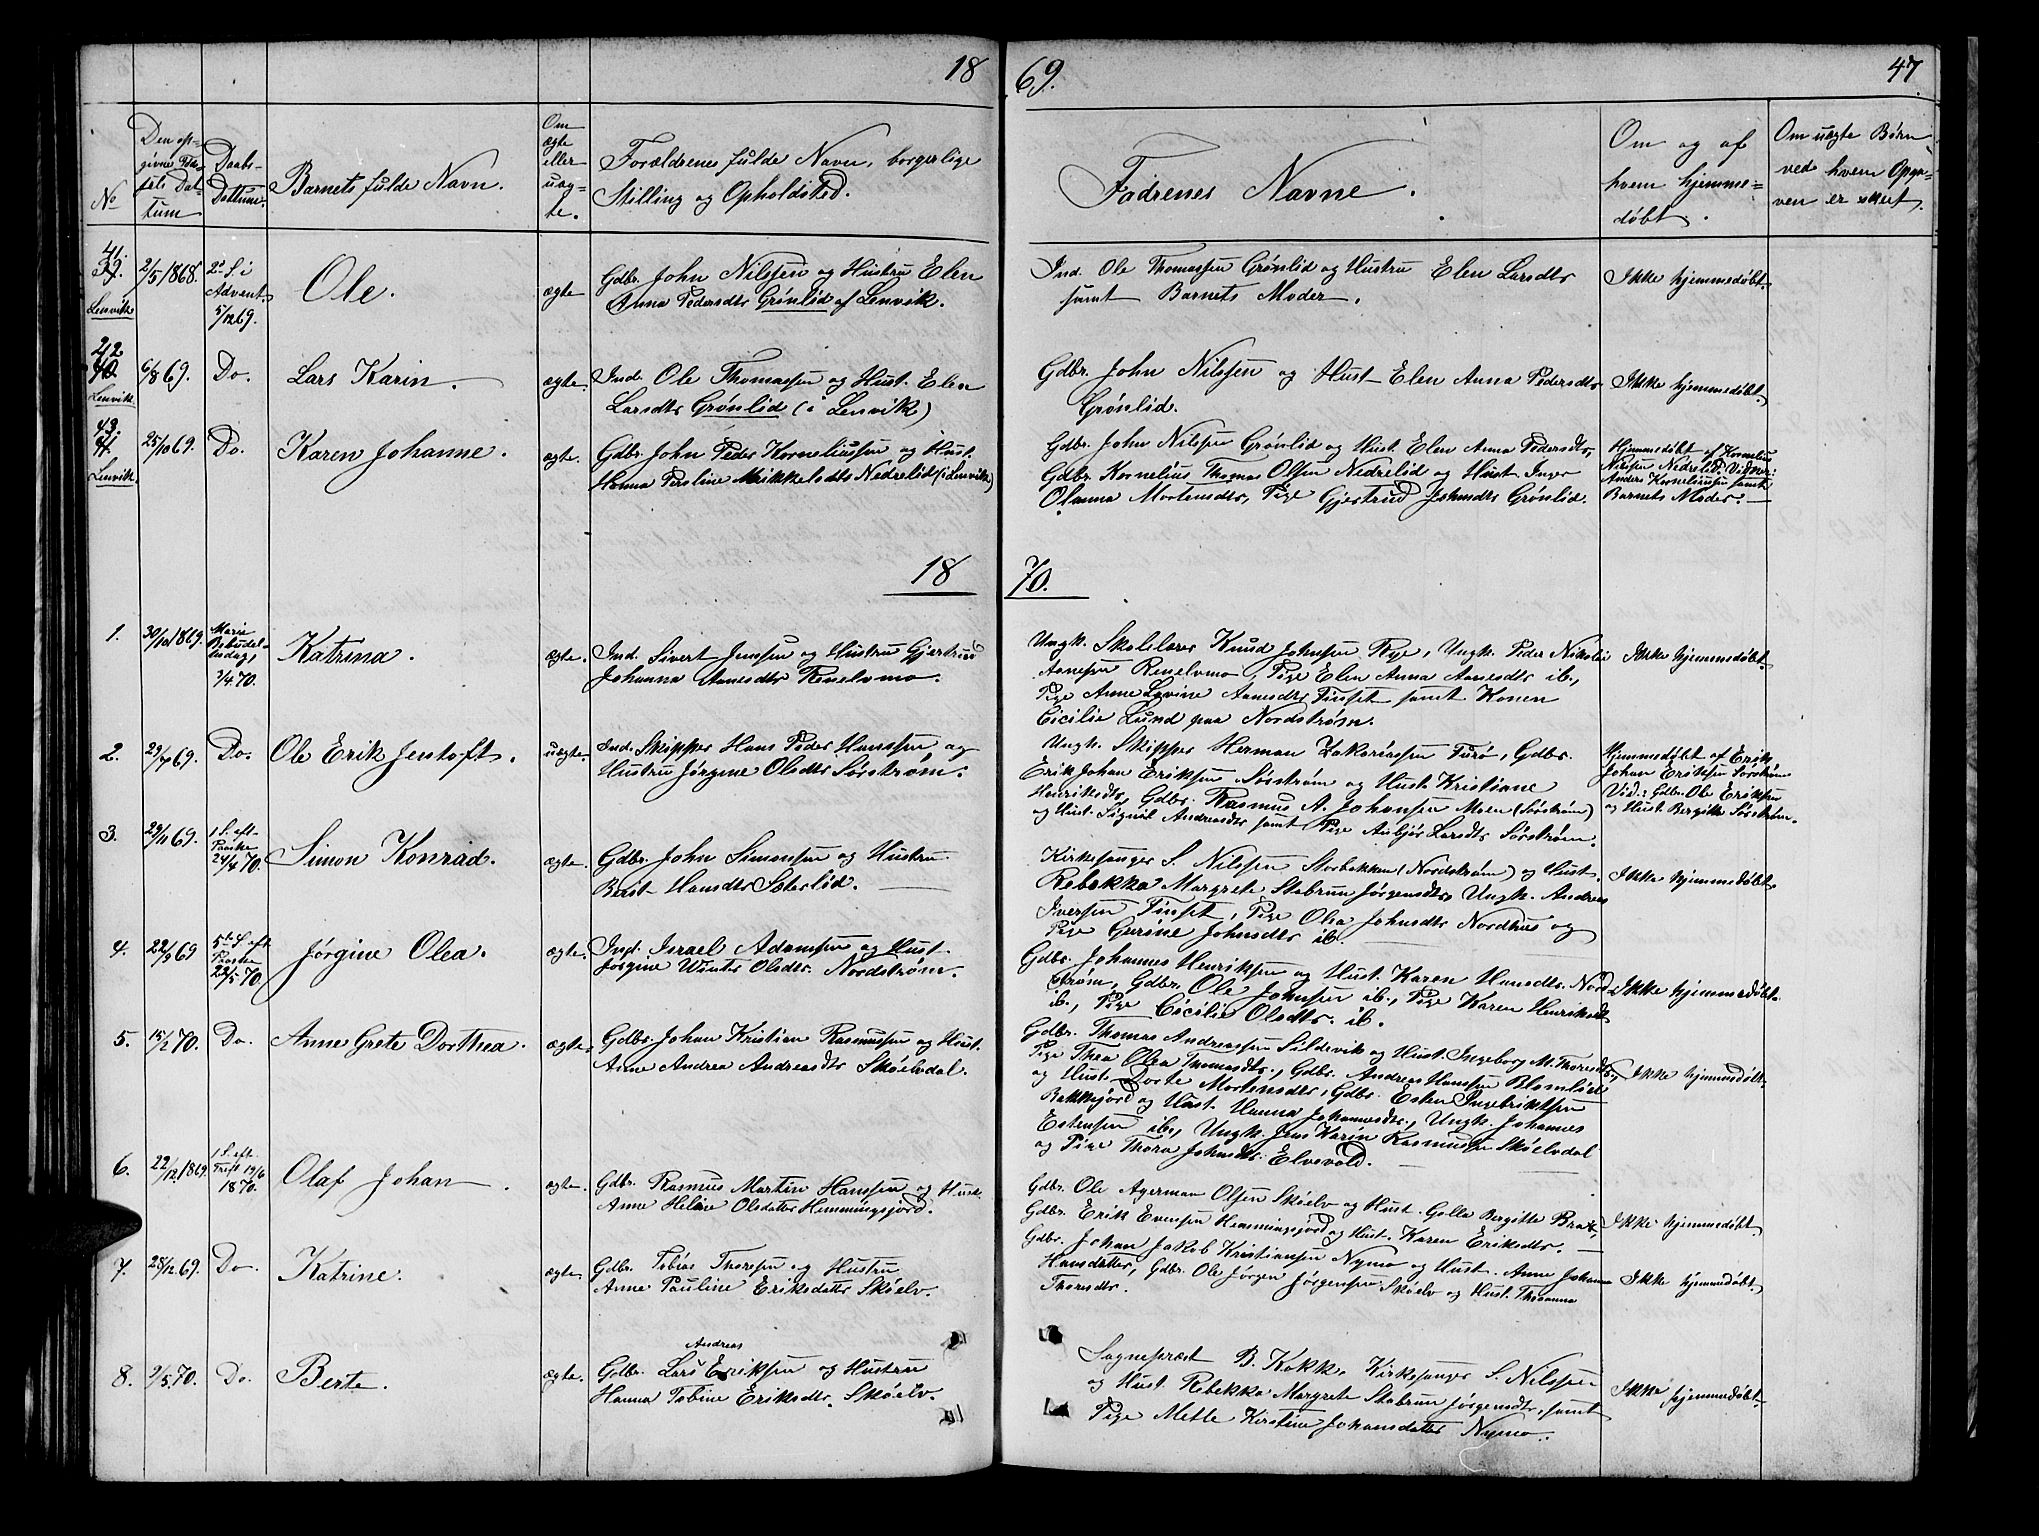 18 69. 47
No
Den op-
givne Fød-
sels Dat-
tum
Daabs-
Dattum.
Barnets fulde Navn.
Om
ægte
eller
uæg-
te.
Forældrenes fulde Navn, borgerlige
Stilling og Opholdsted.
Fadrenes Navne.
Om og af
hvem hjemme-
døbt.
Om uægte Børn
ved hvem Opga-
ven er skeet.
41.
39.
Lenvik
2/5 1868.
2d S. i
Advent
5/12 69.
Ole.
ægte
Gdbr. John Nilssen og Hustru Elen
Anna Pedersdtr Grønlid af Lenvik.
Ind. Ole Thomassen Grønlid og Hustru Elen Larsdtr
samt Barnets Moder.
Ikke hjemmedøbt.
42
40.
Lenvik
6/8 69.
Do.
Lars Karin.
ægte.
Ind. Ole Thomassen og Hust. Elen
Larsdtr Grønlid (i Lenvik)
Gdbr. John Nilssen og Hust. Elen Anna Pedersdtr
Grønlid.
Ikke hjemmedøbt.
43.
41.
Lenvik
25/10 69.
Do.
Karen Johanne.
ægte.
Gdbr. John Peder Korneliussen og Hust.
Hanna Peroline Mikkelsdtr Nedrelid (i Lenvik)
Gdbr. John Nilssen Grønlid og Hust. Elen Anna Pedersdtr,
Gdbr. Kornelius Thomas Olsen Nedrelid og Hust. Inger
Olanna Mortensdtr, Pige Gjertrud Johnsdtr Grønlid.
Hjemmedøbt af Kornelius
Nilsen Nedrelid. Vidner:
Anders Korneliussen samt
Barnets Moder.
18 70.
1.
30/10 1869.
Mariæ
Bebudel-
sesdag,
3/4 70.
Katrina.
ægte.
Ind. Sivert Jensen og Hustru Gjertrud
Johanna Arnesdtr Renelvmo.
Ungk. Skolelærer Knud Johnsen Rye, Ungk. Peder Nikolai
Arnesen Renelvmo, Pige Elen Anna Arnesdtr ib.,
Pige Anne Lovine Arnesdtr Finset samt Konen
Cicilie Lund paa Nordstrøm.
Ikke hjemmedøbt
2.
29/7 69.
Do.
Ole Erik Jentoft.
uægte.
Ind. Skipper Hans Peder Hanssen og
Hustru Jørgine Olsdtr Sørstrøm.
Ungk. Skipper Herman Zakariassen Furø, Gdbr.
Erik Johan Eriksen Sørstrøm og Hust. Kristiane
Henriksdtr, Gdbr. Rasmus A. Johansen Moen (Sørstrøm)
og Hust. Signil Andreasdtr samt Pige Anbjør Larsdtr Sørstrøm.
Hjemmedøbt af Erik
Johan Eriksen Sørstrøm
Vid.: Gdbr. Ole Eriksen
og Hust. Bergitte Sørstrøm.
3.
29/11 69.
1 S. eft.
Paaske
24/4 70.
Simon Konrad.
ægte.
Gdbr. John Simonsen og Hustru
Berit Hansdtr Sæterlid.
Kirkesanger S. Nilssen Storbakken (Nordstrøm) og Hust.
Rebekka Margrete Stabrun Jørgensdtr, Ungk. Andreas
Iversen Finset, Pige Olea Johnsdtr Nordhus og
Pige Gurine Johnsdtr ib.
Ikke hjemmedøbt
4.
22/9 69
5te S. eft.
Paaske
22/5 70.
Jørgine Olea.
ægte.
Ind. Israel Adamsen og Hust.
Jørgine Winter Olsdtr. Nordstrøm.
Gdbr. Johannes Henriksen og Hust. Karen Hansdtr. Nord-
strøm, Gdbr. Ole Johnsen ib., Pige Karen Henriksdtr
ib., Pige Cicilie Olsdtr. ib.
Ikke hjemmedøbt.
5.
15/2 70.
Do.
Anne Grete Dorthea.
ægte.
Gdbr. Johan Kristian Rasmussen og Hust.
Anne Andrea Andreasdtr Skøelvdal.
Gdbr. Thomas Andreassen Sildevik og Hust. Ingeborg M. Thoresdtr,
Pige Thea Olea Thomasdtr., Gdbr. Andreas Hansen Blomlid
og Hust. Dorte Mortensdtr, Gdbr. Esten Ingebriktsen
Bakkejord og Hust. Hanna Johannesdtr., Ungk. Johannes
Estensen ib., Ungk. Jens Karin Rasmussen Skøelvdal
og Pige Thora Johnsdtr. Elvevold.
Ikke hjemmedøbt.
6.
22/12 1869
1 S. eft.
Tref. 19/6
1870.
Olaf Johan.
ægte.
Gdbr. Rasmus Martin Hanssen og Hust.
Anne Heline Olsdatter Hemmingsjord.
Gdbr. Ole Agerman Olsen Skøelv og Hust. Golla Bergitte Brat,
Gdbr. Erik Evensen Hemmingsjord og Hust. Karen Eriksdtr.
Ikke hjemmedøbt.
7.
28/12 69.
Do.
Katrine.
ægte.
Gdbr. Tobias Thoresen og Hustru
Anne Pauline Eriksdatter Skøelv.
Gdbr. Johan Jakob Kristiansen Nymo og Hust. Anne Johanna
Hansdatter, Gdbr. Ole Jørgen Jørgensen Skøelv og Hust. Thoranna
Thoresdtr.
Ikke hjemmedøbt.
8.
2/5 70.
Do.
Berte.
ægte.
Andreas
Gdbr. Lars Eriksen og Hustru
Hanna Tobine Eriksdtr. Skøelv.
Sognepræst B. Kokk, Kirkesanger S. Nilssen
og Hust. Rebekka Margrete Stabrun Jørgensdtr, samt
Pige Mette Kirstine Johansdatter Nymo.
Ikke hjemmedøbt.